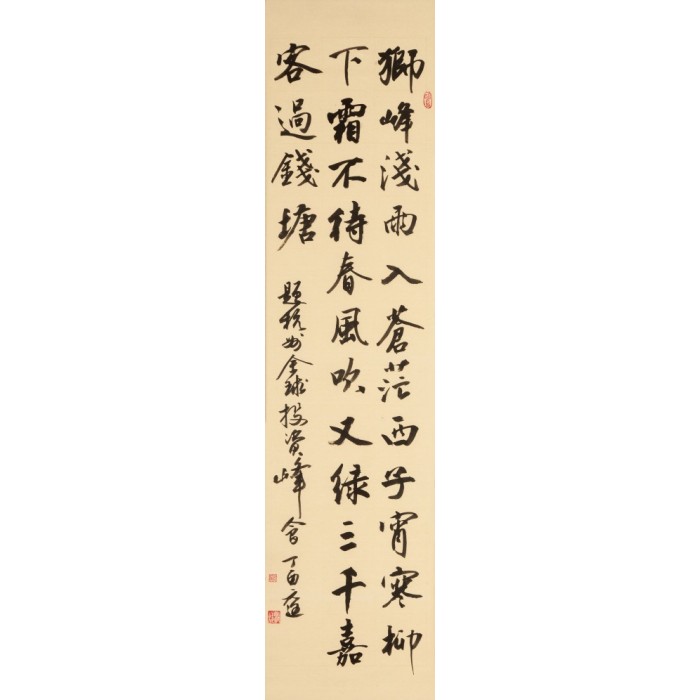 獅峰淺雨入蒼茫西子宵寒柳
下霜不待春風吹又綠三千嘉
客過錢塘
題杭州全球投資峰會丁酉